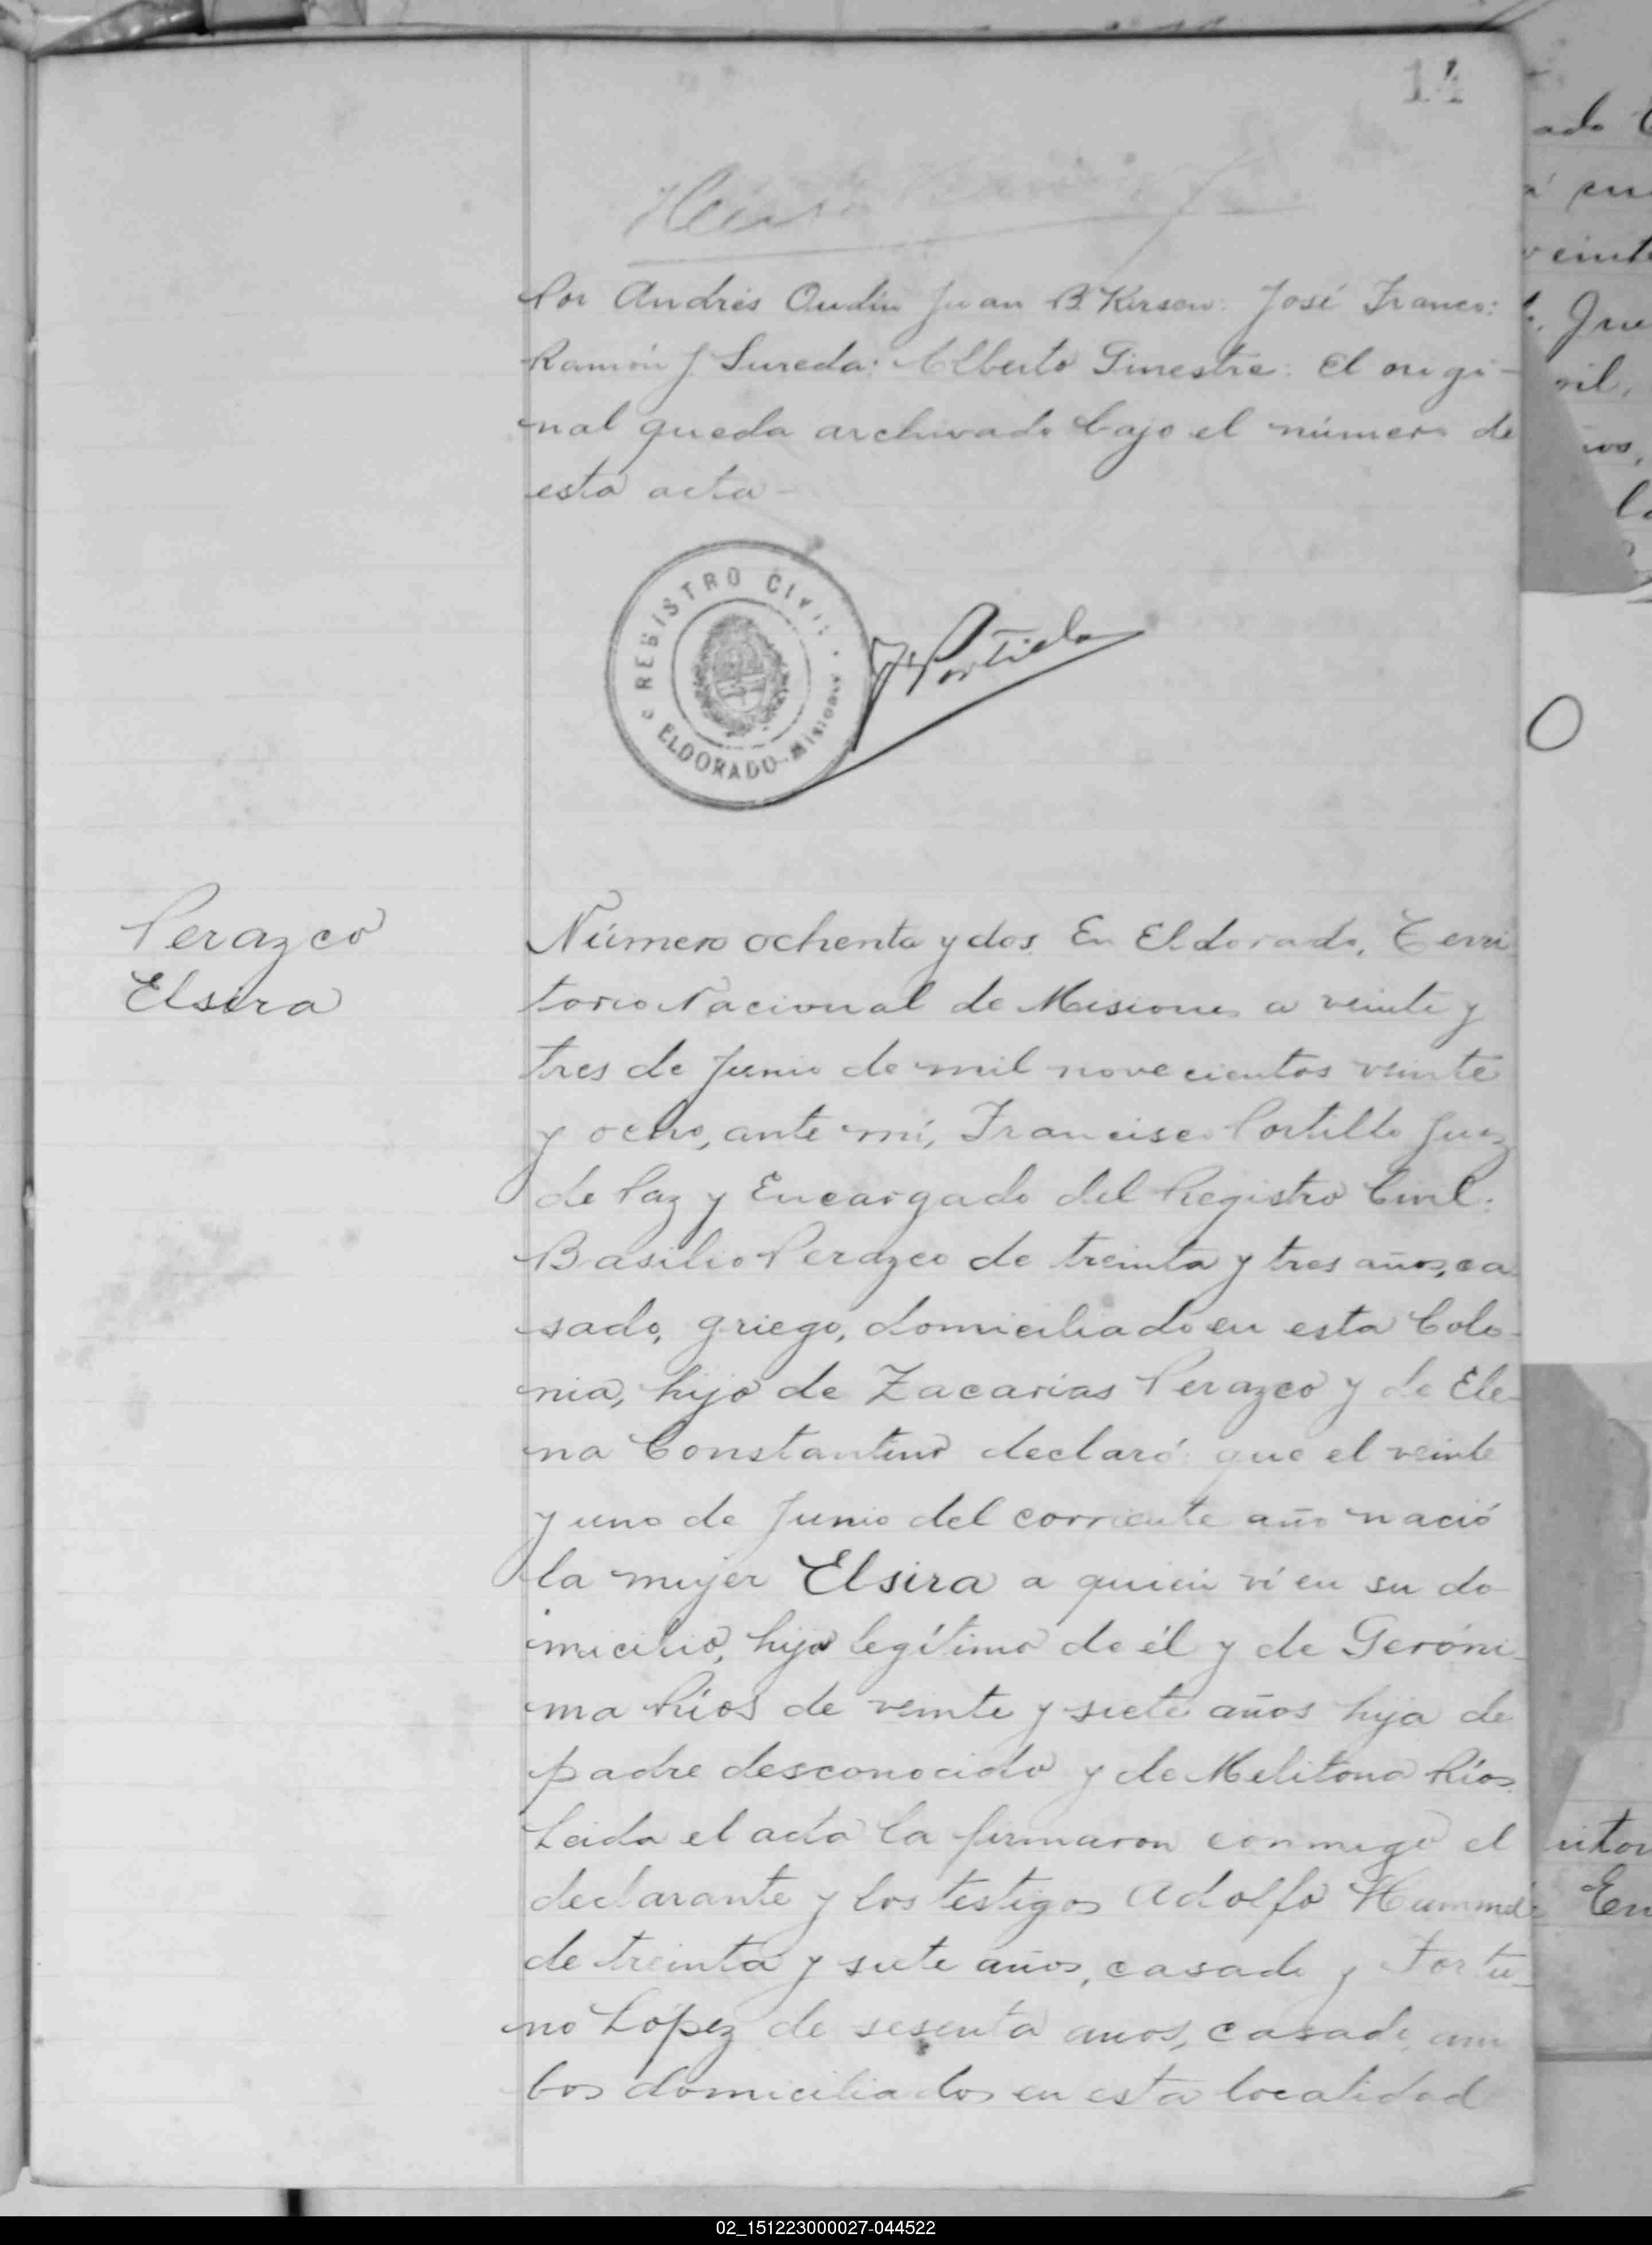 14
Por Andrés Oudín Juan B Kirsen: José Franco:
Ramón J. Sureda: Alberto Ginestre: El origi-
nal queda archivado bajo el número de
esta acta-
REGISTRO CIVIL
ELDORADO-Misiones
Perazco
Elsira
Número ochenta y dos. En Eldorado, Terri
torio Nacional de Misiones a veinte y
tres de Junio de mil novecientos veinte
y ocho, ante mí, Francisco Portillo Juez
de Paz y Encargado del Registro Civil:
Basilio Perazco de treinta y tres años, ca
sado, griego, domiciliado en esta Colo-
nia, hijo de Zacarías Perazco y de Ele-
na Constantino declaró: que el veinte
y uno de Junio del corriente año nació
la mujer Elsira a quien ví en su do
micilio, hija legítima de él y de Geróni-
ma Ríos de veinte y siete años hija de
padre desconocido y de Melitona Ríos.
Leida el acta la firmaron conmigo el
declarante y los testigos Adolfo Hummel
de treinta y siete años, casado y Fortu-
no López de sesenta años, casado, am
bos domiciliados en esta localidad
ado
en
veinte
ritor
En
02_151223000027-044522